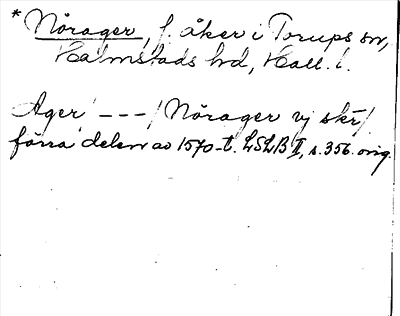 * Nörager, f. åker i Torups sn,
Halmstads hd, Hall. l.
Ager --- / Nörager vj skr /
förra delen av 1570-t. LSLB II, s. 356. orig.